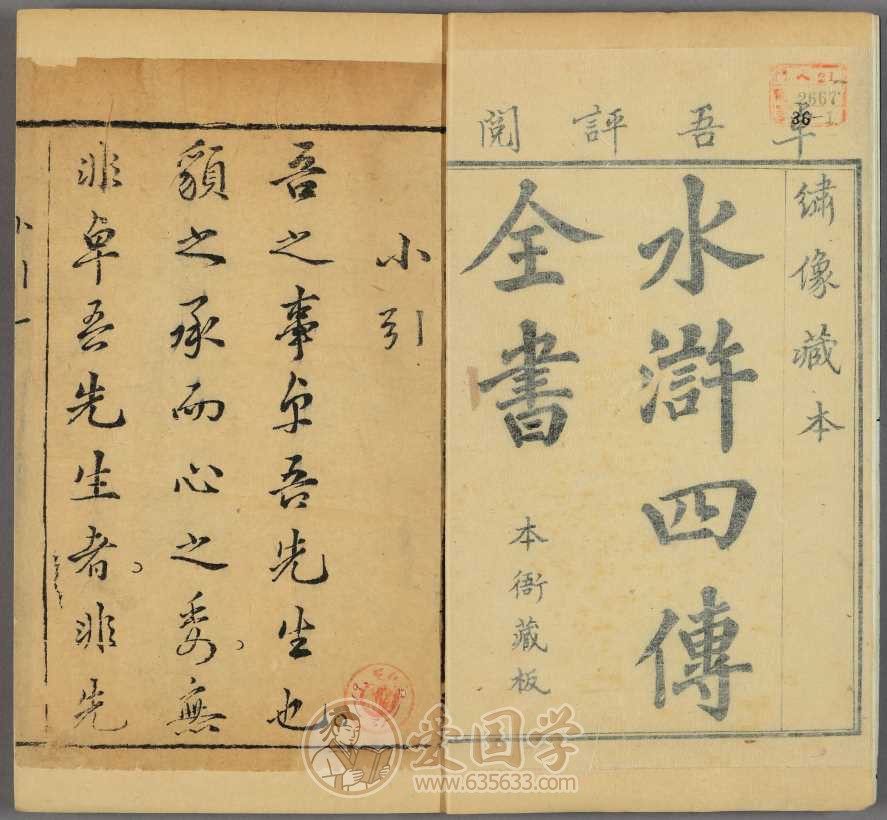 卓吾評閱
繡像藏本
水滸四傳
全書
本衙藏板
小引
吾之事卓吾先生也
貌之承而心之委無
非卓吾先生者非先
小引一
21
2667
36-1
爱国学
www.635633.com